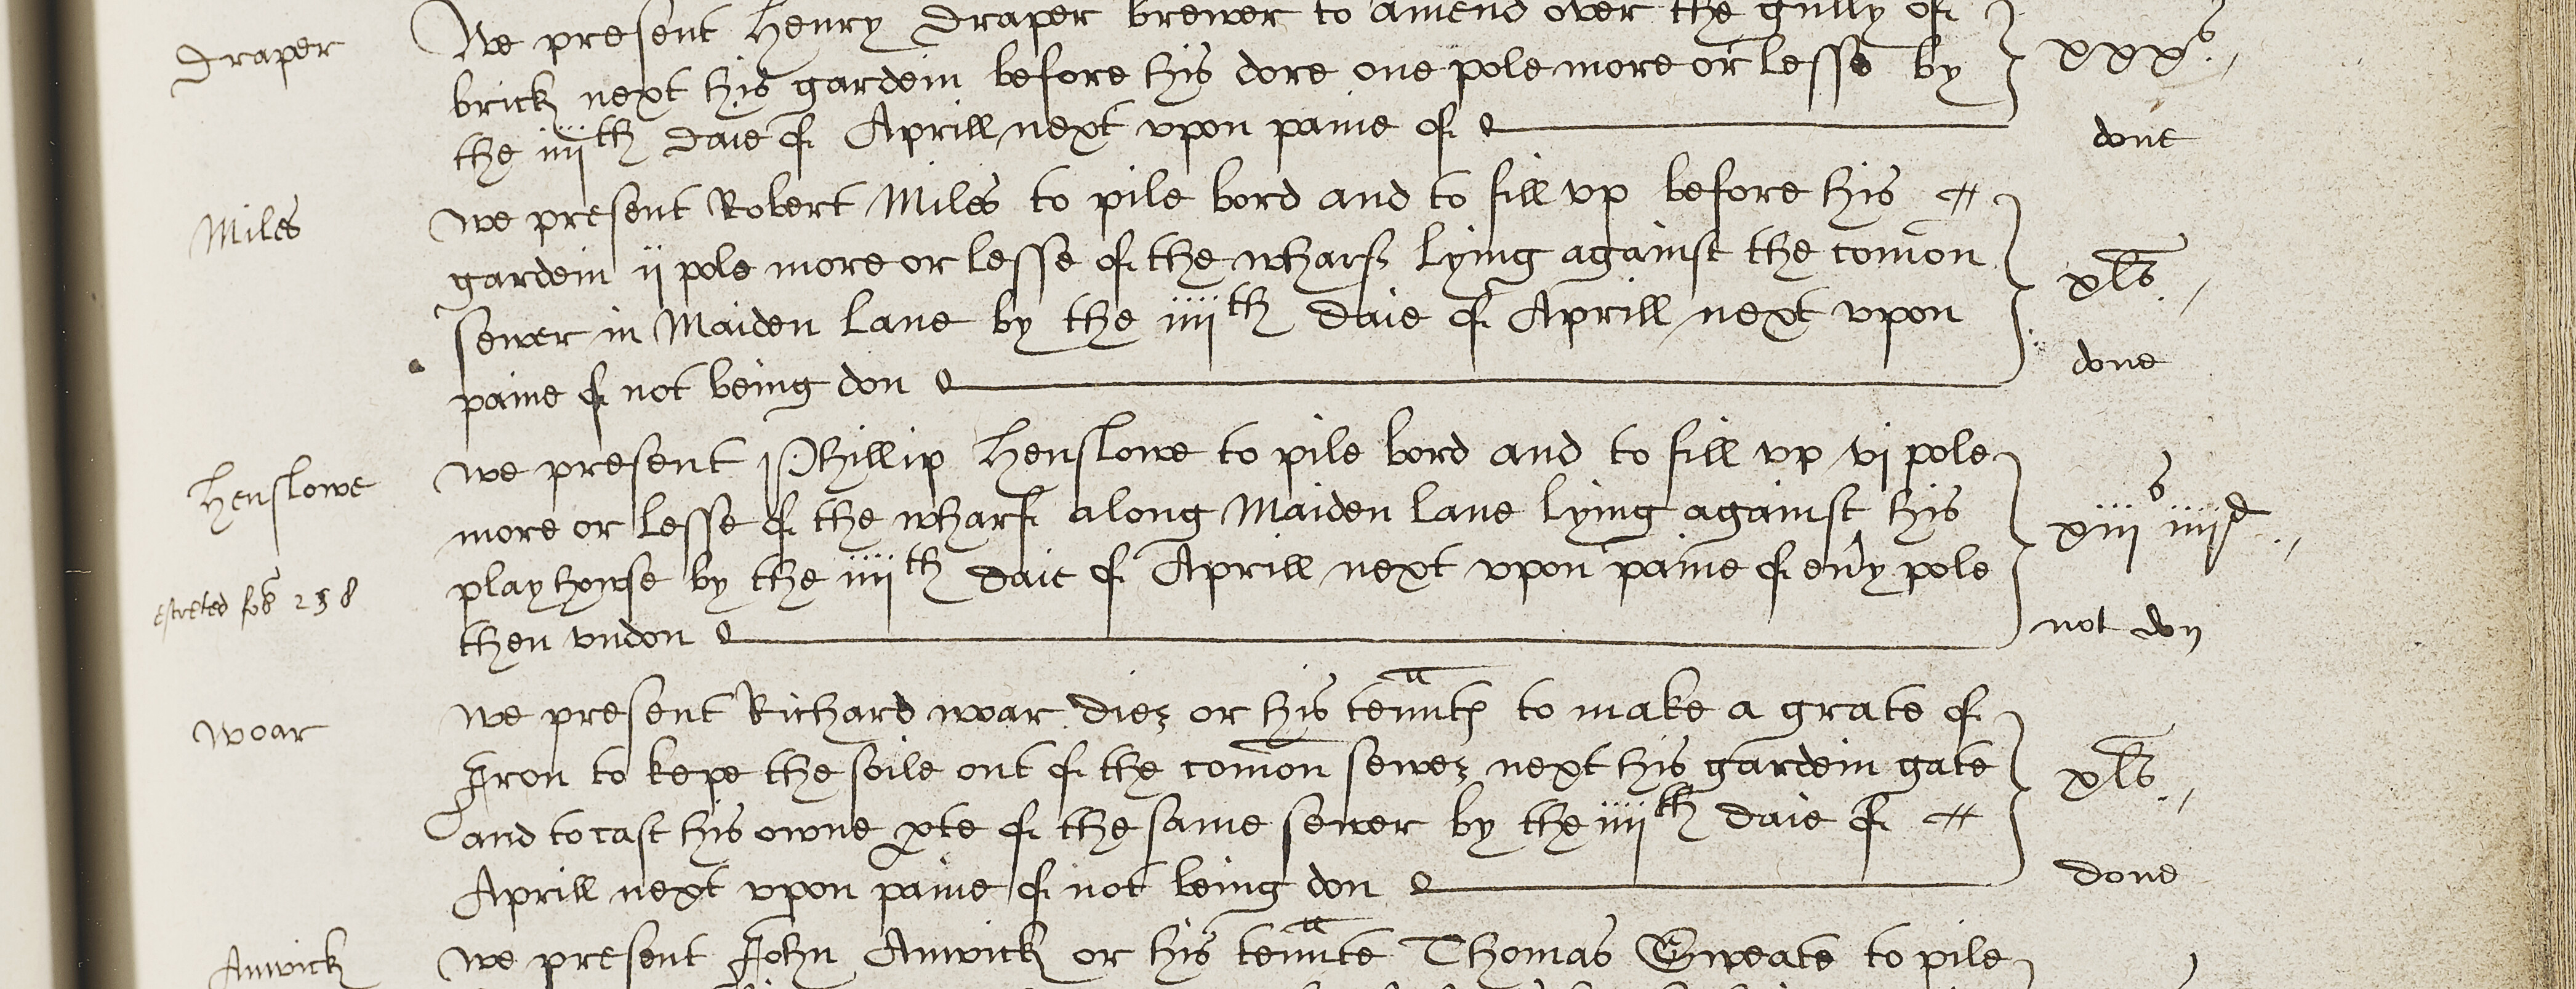 Draper
We present Henry Draper brewer to amend over the gully of
brick next his gardein before his dore one pole more or lesse by
the iiijth daie of Aprill next vpon paine of
xxxs.
done
Miles
we present Robert Miles to pile bord and to fill vp before his
gardein ij pole more or lesse of the wharf lying against the comon
sewer in Maiden lane by the iiijth daie of Aprill next vpon
paine of not being don
xls.
done
Henslowe
estreted fol 258
we present Phillip Henslowe to pile bord and to fill vp vj pole
more or lesse of the wharf along Maiden lane lying against his
playhowse by the iiijth daie of Aprill next vpon paine of eu'y pole
then vndon
xiijs iiijd.
not don
Woar
we present Richard woar dier or his tennts to make a grate of
Iron to kepe the soile out of the comon sewer next his gardein gate
and to cast his owne pte of the same sewer by the iiijth daie of
Aprill next vpon paine of not being don
xls.
done
Anwick
we present John Anwick or his tennte Thomas Sweate to pile